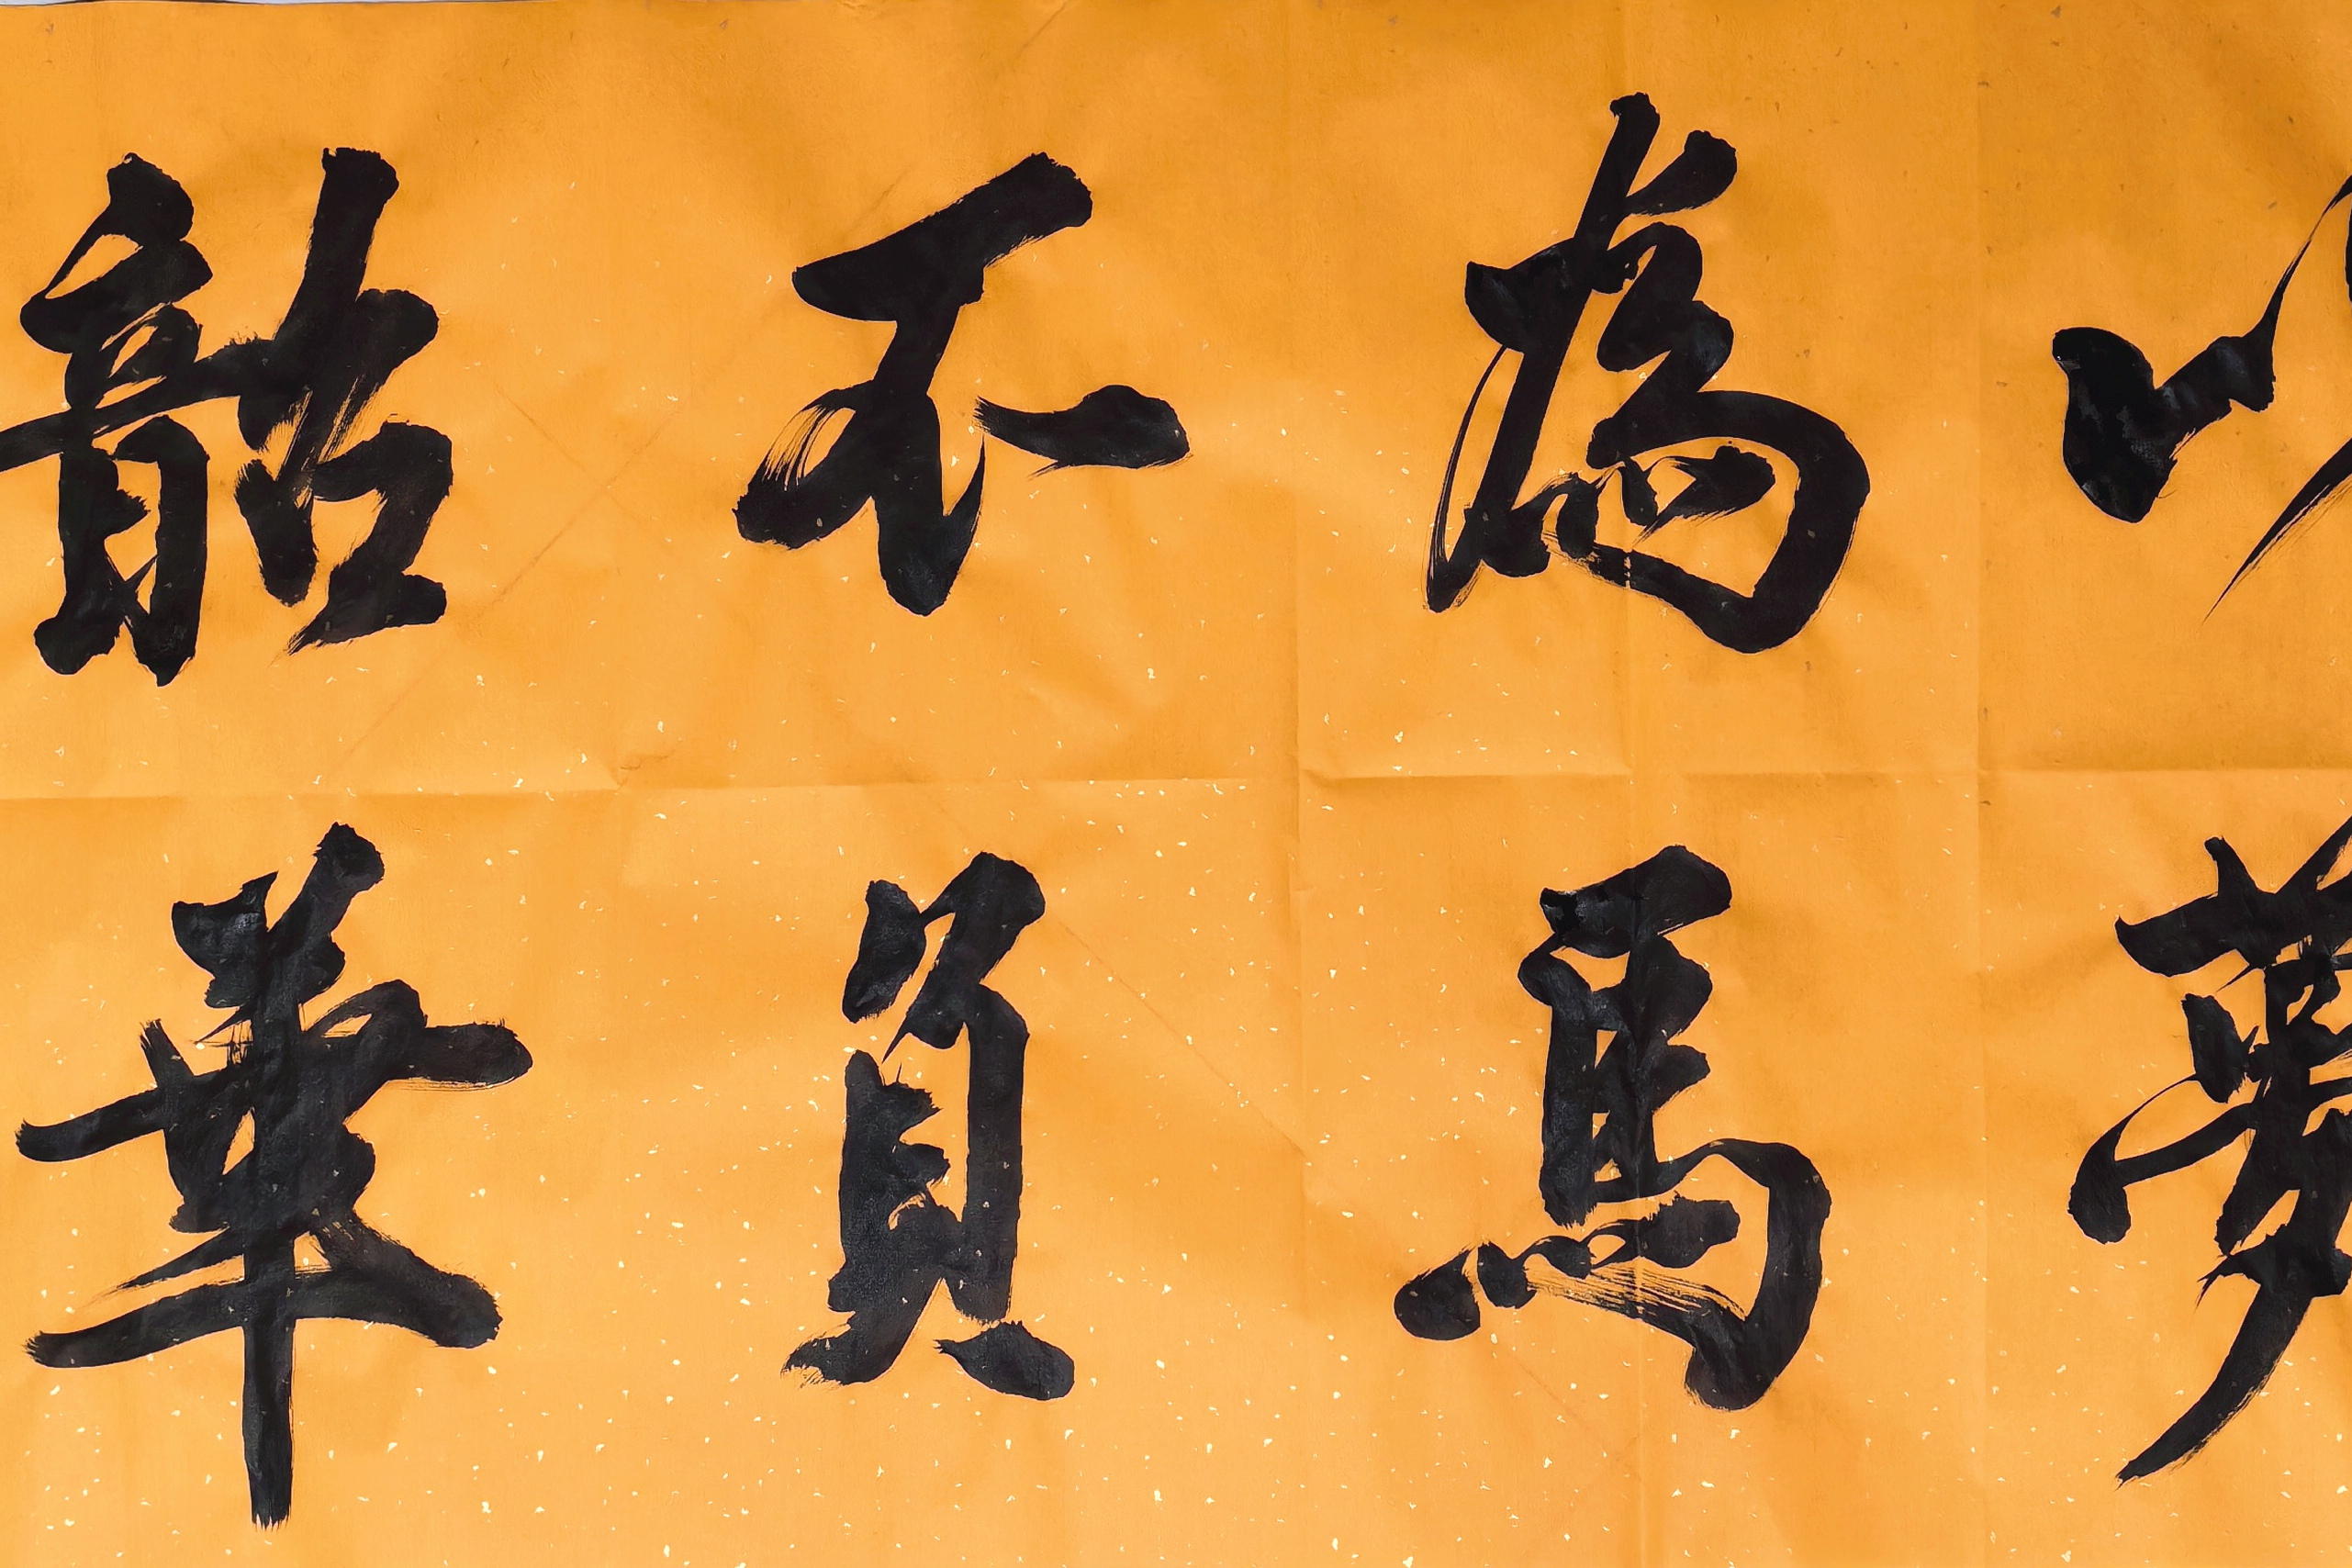 以夢
為馬
不負
韶華